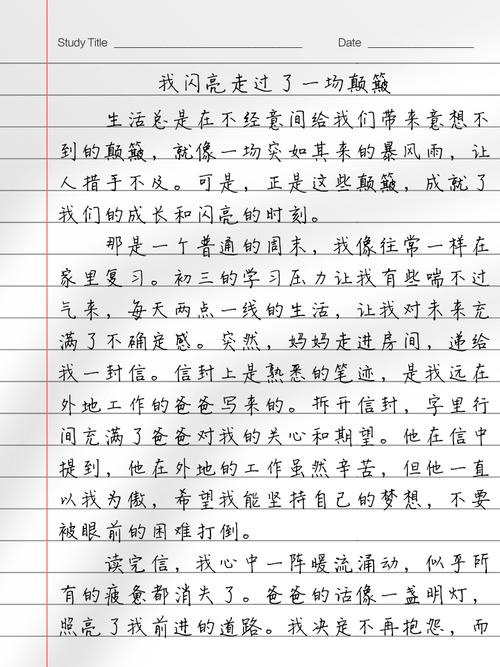 Study Title Date
我闪亮走过了一场颠簸
生活总是在不经意间给我们带来意想不
到的颠簸，就像一场突如其来的暴风雨，让
人措手不及。可是，正是这些颠簸，成就了
我们的成长和闪亮的时刻。
那是一个普通的周末，我像往常一样在
家里复习。初三的学习压力让我有些喘不过
气来，每天两点一线的生活，让我对未来充
满了不确定感。突然，妈妈走进房间，递给
我一封信。信封上是熟悉的笔迹，是我远在
外地工作的爸爸写来的。拆开信封，字里行
间充满了爸爸对我的关心和期望。他在信中
提到，他在外地的工作虽然辛苦，但他一直
以我为傲，希望我能坚持自己的梦想，不要
被眼前的困难打倒。
读完信，我心中一阵暖流涌动，似乎所
有的疲惫都消失了。爸爸的话像一盏明灯，
照亮了我前进的道路。我决定不再抱怨，而